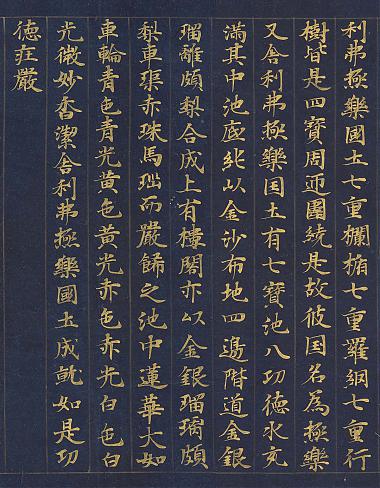 利弗極樂國土七重欄楯七重羅網七重行
樹皆是四寶周迊圍繞是故彼国名為極樂
又舍利弗極樂国土有七寶池八功德水充
滿其中池底純以金沙布地四邊階道金銀
瑠璃頗梨合成上有樓閣亦以金銀瑠璃頗
梨車𤦲赤珠馬瑙而嚴飾之池中蓮華大如
車輪青色青光黄色黄光赤色赤光白色白
光微妙香潔舍利弗極樂國土成就如是功
德莊嚴